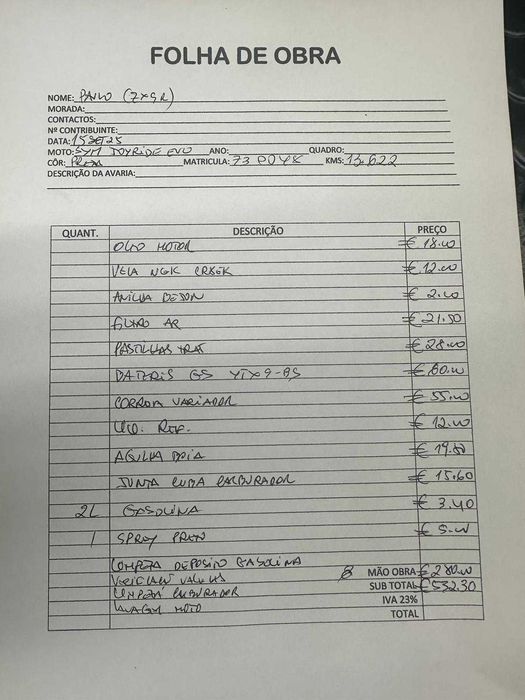 FOLHA DE OBRA
NOME: PAULO (ZXGR)
MORADA:
CONTACTOS:
Nº CONTRIBUINTE:
DATA: 15 SET 25
MOTO: SYM JOYRIDE EVO ANO: QUADRO:
CÔR: PRETA MATRICULA: 73 KMS: 13.622
DESCRIÇÃO DA AVARIA:
QUANT. DESCRIÇÃO PREÇO
OLEO MOTOR € 18.00
VELA NGK CR8EK € 12.00
ANILHA € 2.00
FILTRO AR € 21.50
PASTILHAS TRAT € 28.00
BATERIS GS YTX9-BS € 80.00
CORREIA VARIADOR € 55.00
LIQ. REF. € 12.00
AGULHA BOIA € 19.80
JUNTA CUBA CARBURADOR € 15.60
2L GASOLINA € 3.40
1 SPRAY PRETO € 5.00
LIMPEZA DEPOSITO GASOLINA
VERIFICAR VALVULAS MÃO OBRA € 280.00
LIMPEZA CARBURADOR SUB TOTAL € 532.30
LAVAGEM MOTO IVA 23%
TOTAL